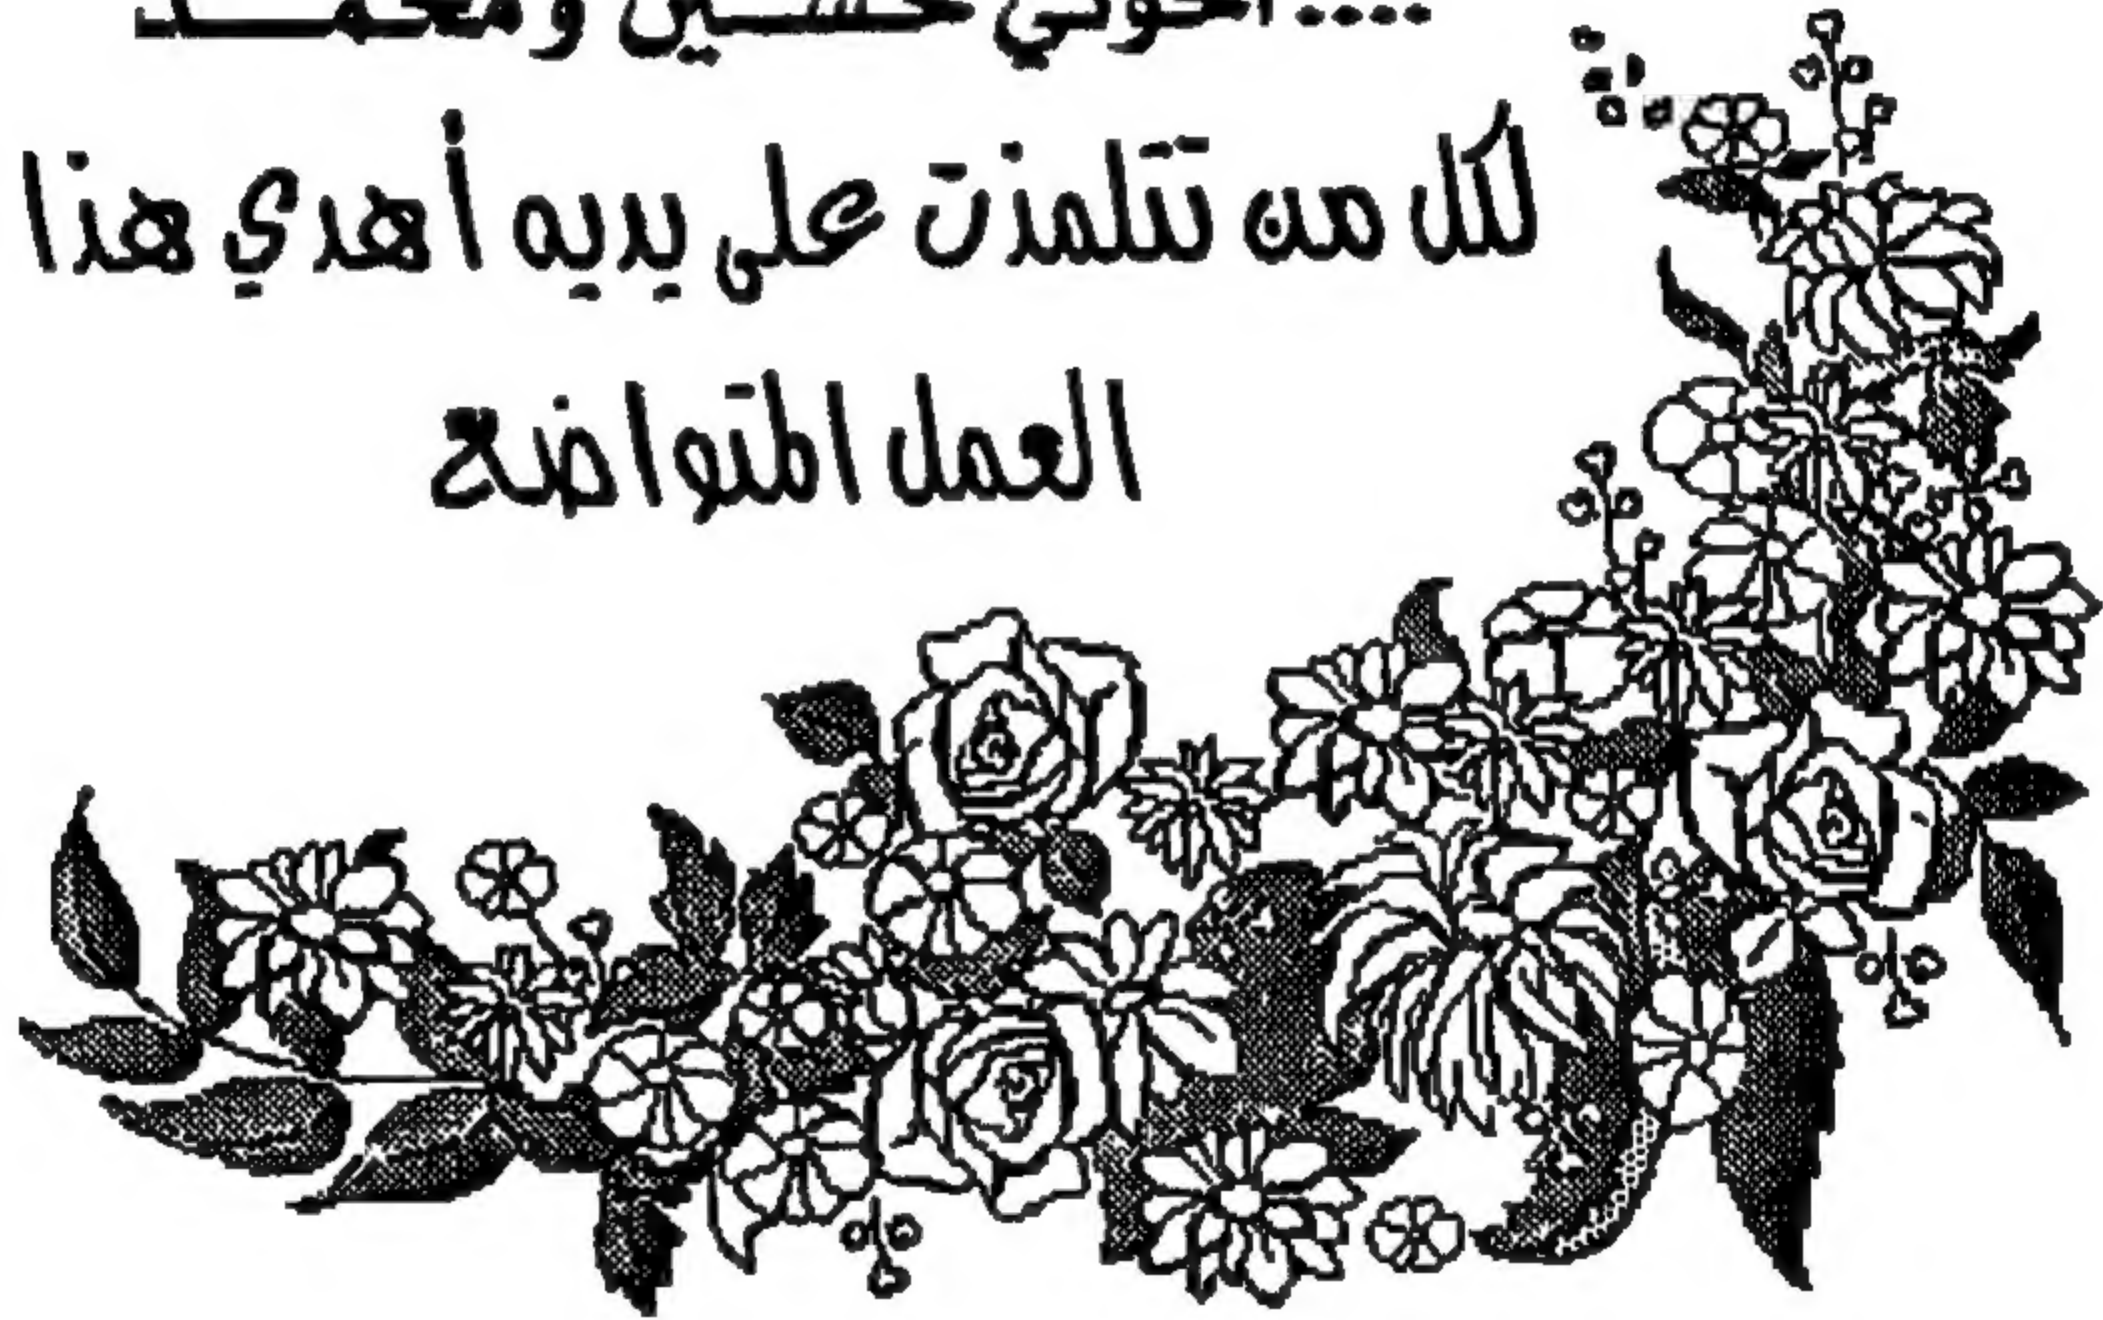 .... اخوتي حسين ومحمد
لكل من تتلمذت على يديه أهدي هذا
العمل المتواضع